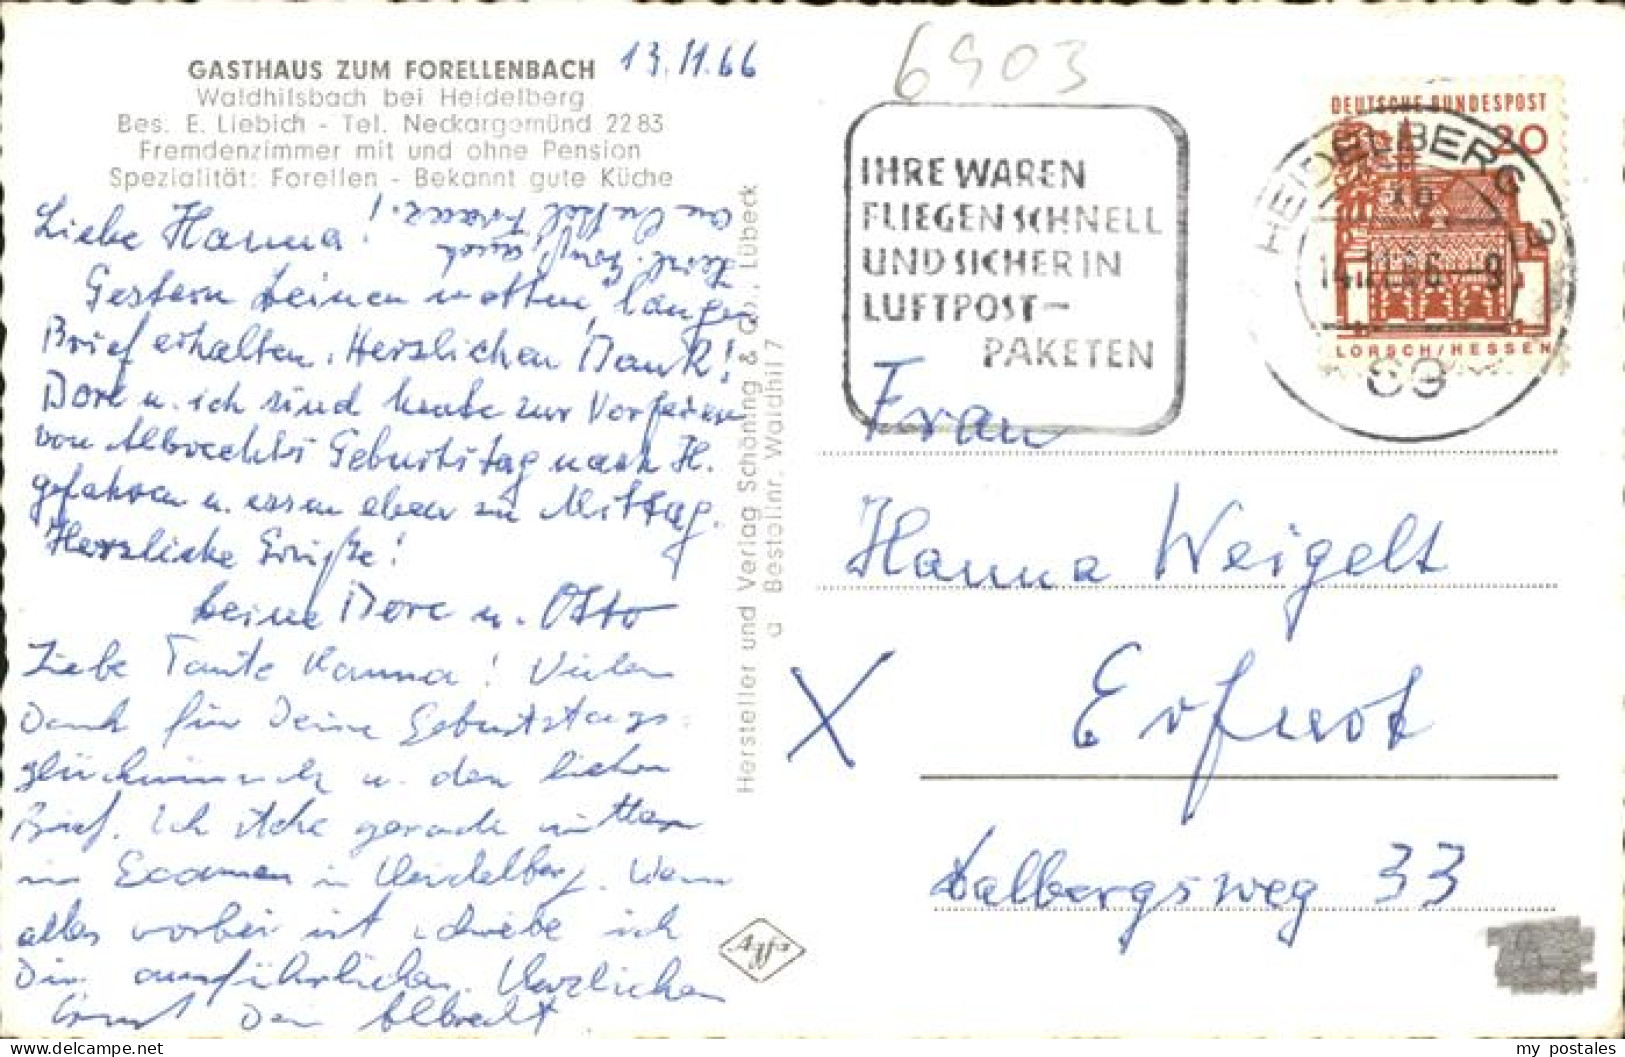 GASTHAUS ZUM FORELLENBACH
Waldhilsbach bei Heidelberg
Bes. E. Liebich - Tel. Neckargemünd 22 83
Fremdenzimmer mit und ohne Pension
Spezialität: Forellen - Bekannt gute Küche
13.11.66
Liebe Hanna!
Gestern Deinen netten, langen
Brief erhalten. Herzlichen Dank!
Dore u. ich sind heute zur Vorfeier
von Albrechts Geburtstag nach H.
gefahren u. essen eben zu Mittag.
Herzliche Grüße!
Deine Dore u. Otto
Herzl. Grüße auch
an Onkel Franz.
Liebe Tante Hanna! Vielen
Dank für Deine Geburtstags-
glückwünsche u. den lieben
Brief. Ich stehe gerade mitten
im Examen in Heidelberg. Wenn
alles vorbei ist schreibe ich
Dir ausführlicher. Herzlichen
Gruß Dein Albrecht
Hersteller und Verlag Schöning & Co., Lübeck
a Bestellnr. Waldhil 7
Agfa
6903
IHRE WAREN
FLIEGEN SCHNELL
UND SICHER IN
LUFTPOST-
PAKETEN
DEUTSCHE BUNDESPOST
20
LORSCH/HESSEN
HEIDELBERG 2
14.11.66-9
69
Frau
Hanna Weigelt
X
Erfurt
Dalbergsweg 33
my_postales